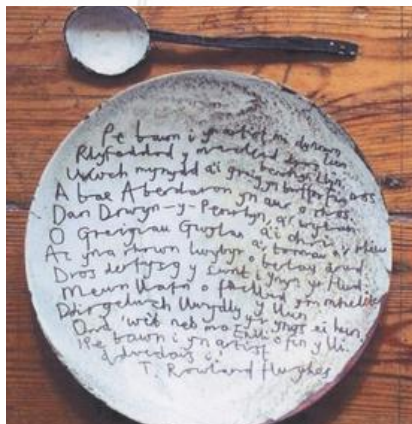 Pe bawn i yn artist mi dynnwn
Rhyfeddod y machlud dros Lŷn
Uwch mynydd a'i graig yn borffor fin nos
A bae Aberdaron yn aur a rhos.
Dan Drwyn-y-Penrhyn, a'r wylan
O Greigiau Gwylan a'i chri
Ac yna rhown lwybr o berlau drud
Dros derfysg y Swnt i Ynys yr
Mewn llafn o fachlud ym mhellter
Ddirgelwch llwydlas yr Ynys ei hun.
Ond 'wêl neb mo Enlli o fin y lli:
Pe bawn i yn artist
ddwedais i?
T. Rowland Hughes